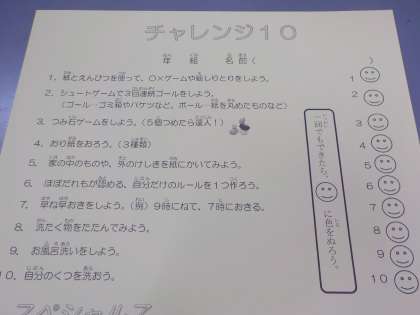 チャレンジ10
年 組 名前( )
1.紙とえんぴつを使って、○×ゲームや絵しりとりをしよう。
2.シュートゲームで3回連続ゴールをしよう。
(ゴール…ゴミ箱やバケツなど、ボール…紙を丸めたものなど)
3.つみ石ゲームをしよう。(5個つめたら達人!)
4.おり紙をおろう。(3種類)
5.家の中のものや、外のけしきを紙にかいてみよう。
6.ほぼだれもが認める、自分だけのルールを1つ作ろう。
7.早ね早おきをしよう。(例)9時にねて、7時におきる。
8.洗たく物をたたんでみよう。
9.お風呂洗いをしよう。
10.自分のくつを洗おう。
1
2
3
4
5
6
7
8
9
10
一回でもできたら、に色をぬろう。